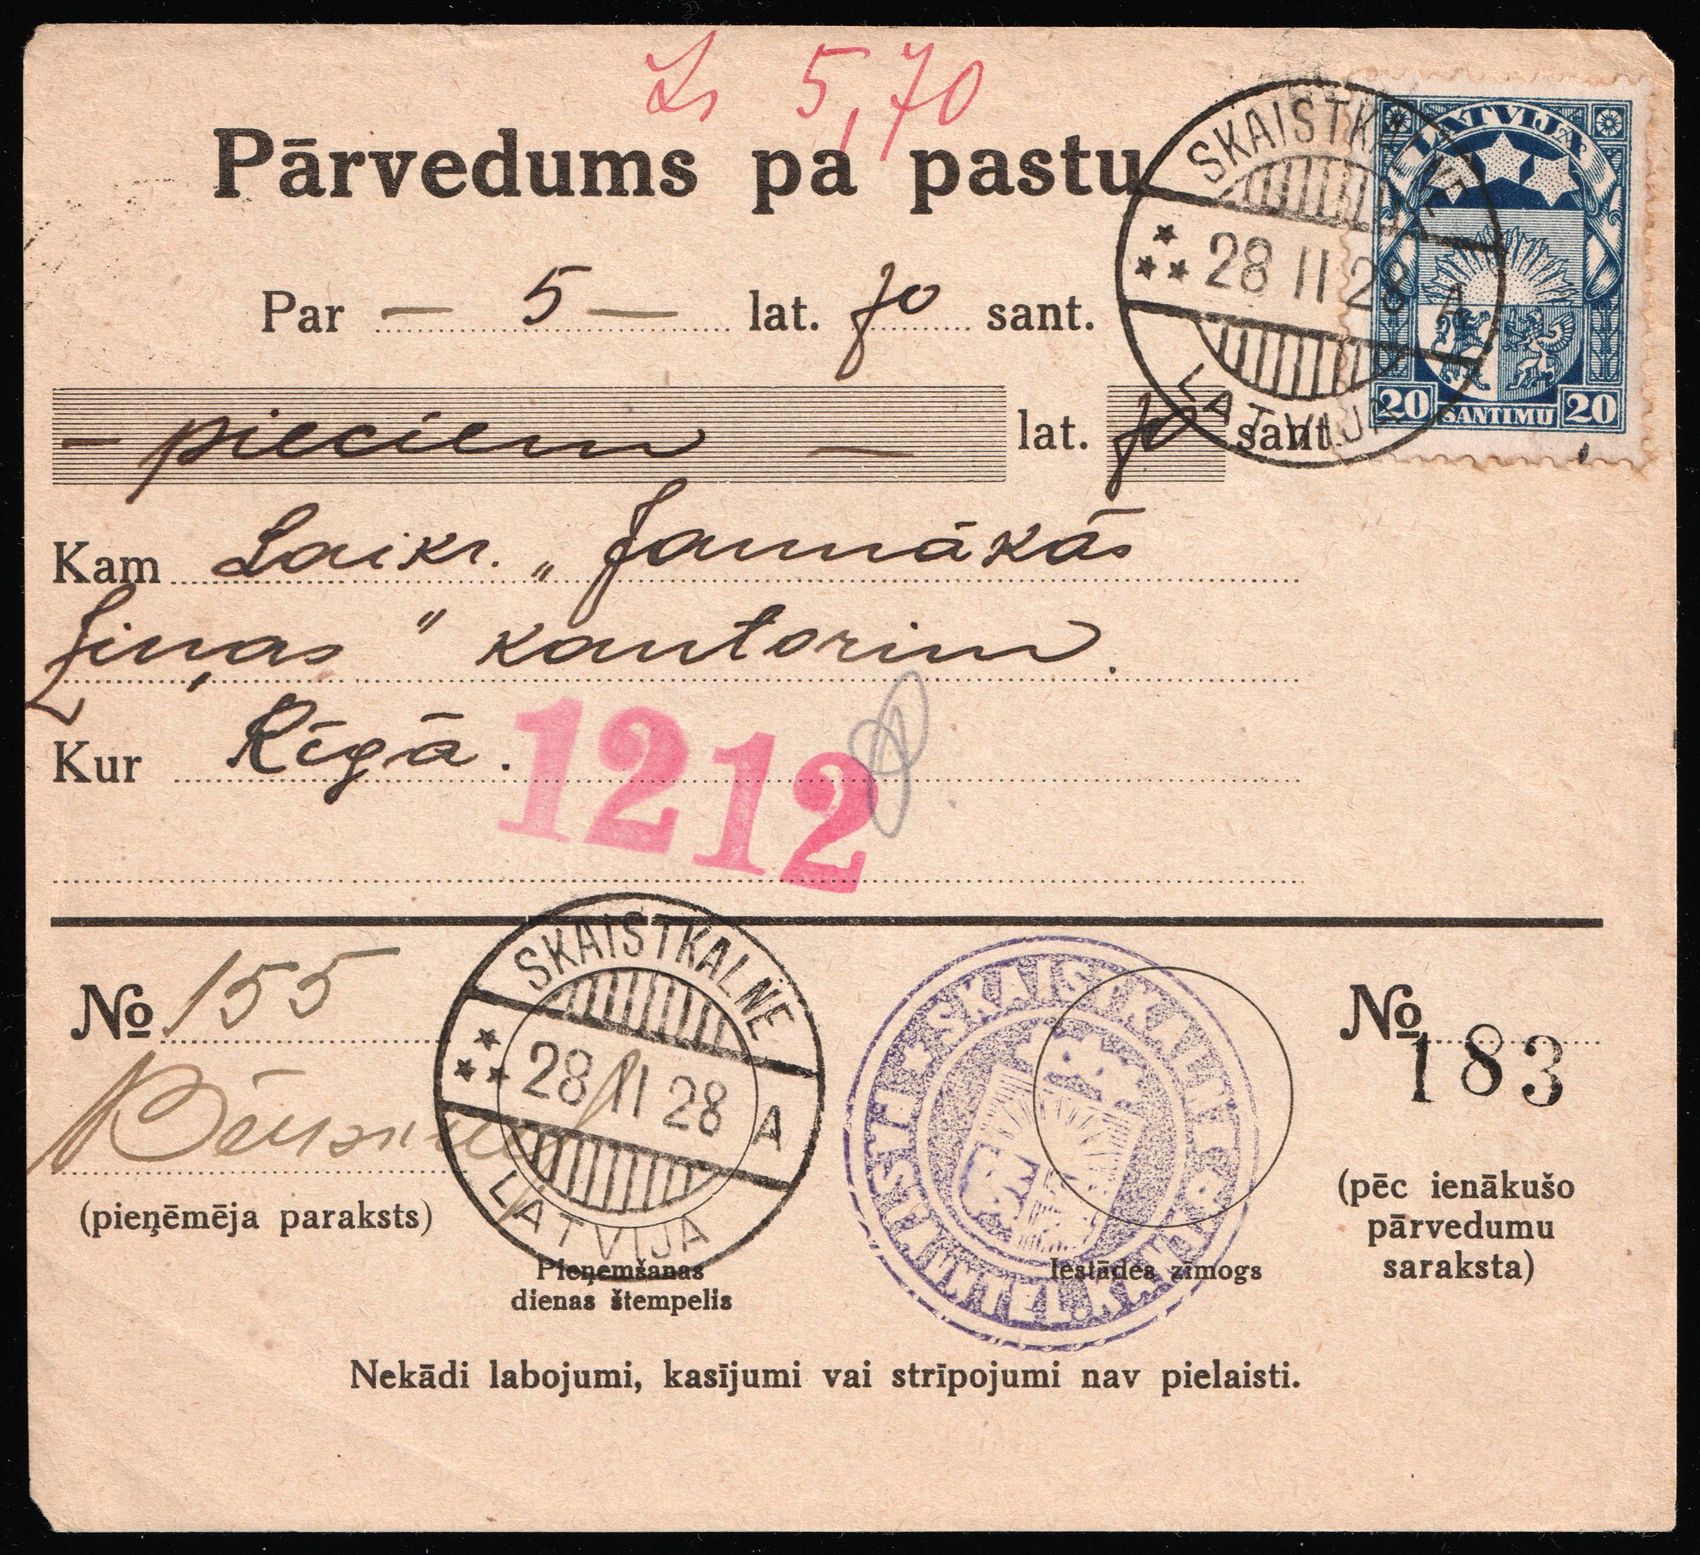 Ls 5,70
Pārvedums pa pastu
SKAISTKALNE
28 II 28 A
LATVIJA
LATVIJA
20 SANTIMU 20
Par — 5 — lat. 70 sant.
— pieciem — lat. 70 sant.
Kam Laikr. „Jaunākās
Ziņas" kantorim.
Kur Rīgā.
1212
No 155
SKAISTKALNE
28 II 28 A
LATVIJA
SKAISTKALNE
No 183
(pieņēmēja paraksts)
Pieņemšanas
dienas štempelis
Iestādes zīmogs
(pēc ienākušo
pārvedumu
saraksta)
Nekādi labojumi, kasījumi vai strīpojumi nav pielaisti.